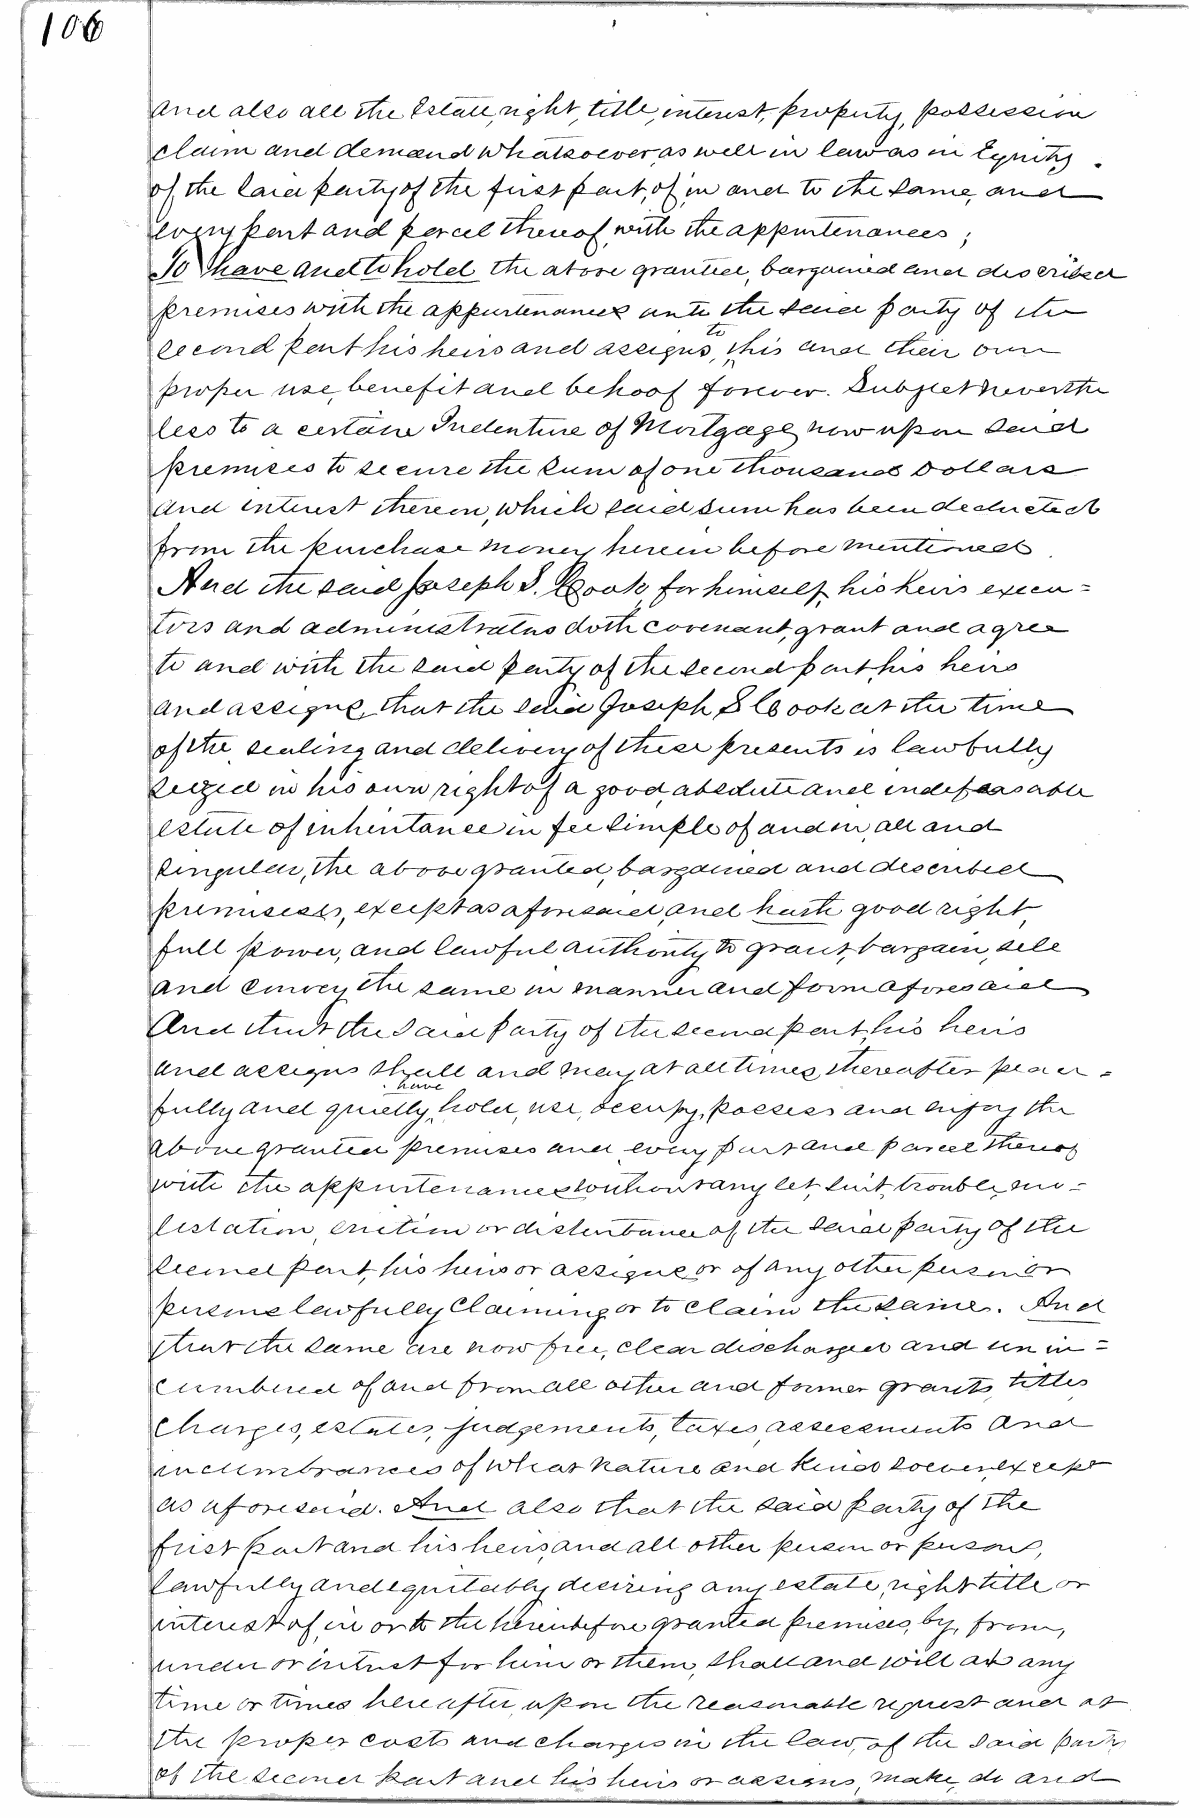 106
and also all the Estate, right, title, interest, property, possession
claim and demand whatsoever, as well in law as in Equity,
of the said party of the first part, of, in and to the same, and
every part and parcel thereof, with the appurtenances;
To have and to hold the above granted, bargained and described
premises with the appurtenances unto the said party of the
second part his heirs and assigns, to his and their own
proper use, benefit and behoof forever. Subject neverthe
less to a certain Indenture of Mortgage, now upon said
premises to secure the sum of one thousand Dollars
and interest thereon, which said sum has been deducted
from the purchase money herein before mentioned.
And the said Joseph S. Cook, for himself, his heirs execu=
tors and administrators doth covenant, grant and agree
to and with the said party of the second part, his heirs
and assigns, that the said Joseph S Cook at the time
of the sealing and delivery of these presents is lawfully
seized in his own right of a good, absolute and indefeasable
estate of inheritance in fee simple of and in, all and
singular, the above granted, bargained and described
premises, except as aforesaid, and hath good right,
full power, and lawful authority to grant, bargain, sell
and convey the same in manner and form aforesaid
And that the said Party of the second part, his heirs
and assigns shall and may at all times thereafter peace=
fully and quietly, have hold, use, occupy, possess and enjoy the
above granted premises and every part and parcel thereof
with the appurtenances without any let, suit, trouble, mo=
lestation, eviction or disturbance of the said party of the
second part, his heirs or assigns or of any other person or
persons lawfully Claiming or to claim the same. And
that the same are now free, clear discharged and unin=
cumbered of and from all other and former grants, titles,
charges, estates, judgements, taxes, assessments and
incumbrances of what nature and kind soever, except
as aforesaid. And also that the said party of the
first part and his heirs, and all other person or persons,
lawfully and equitably desiring any estate, right title or
interest of, in or to the herein before granted premises, by, from,
under or in trust for him or them, shall and will at any
time or times hereafter, upon the reasonable request and at
the proper costs and charges in the law, of the said party
of the second part and his heirs or assigns, make, do and